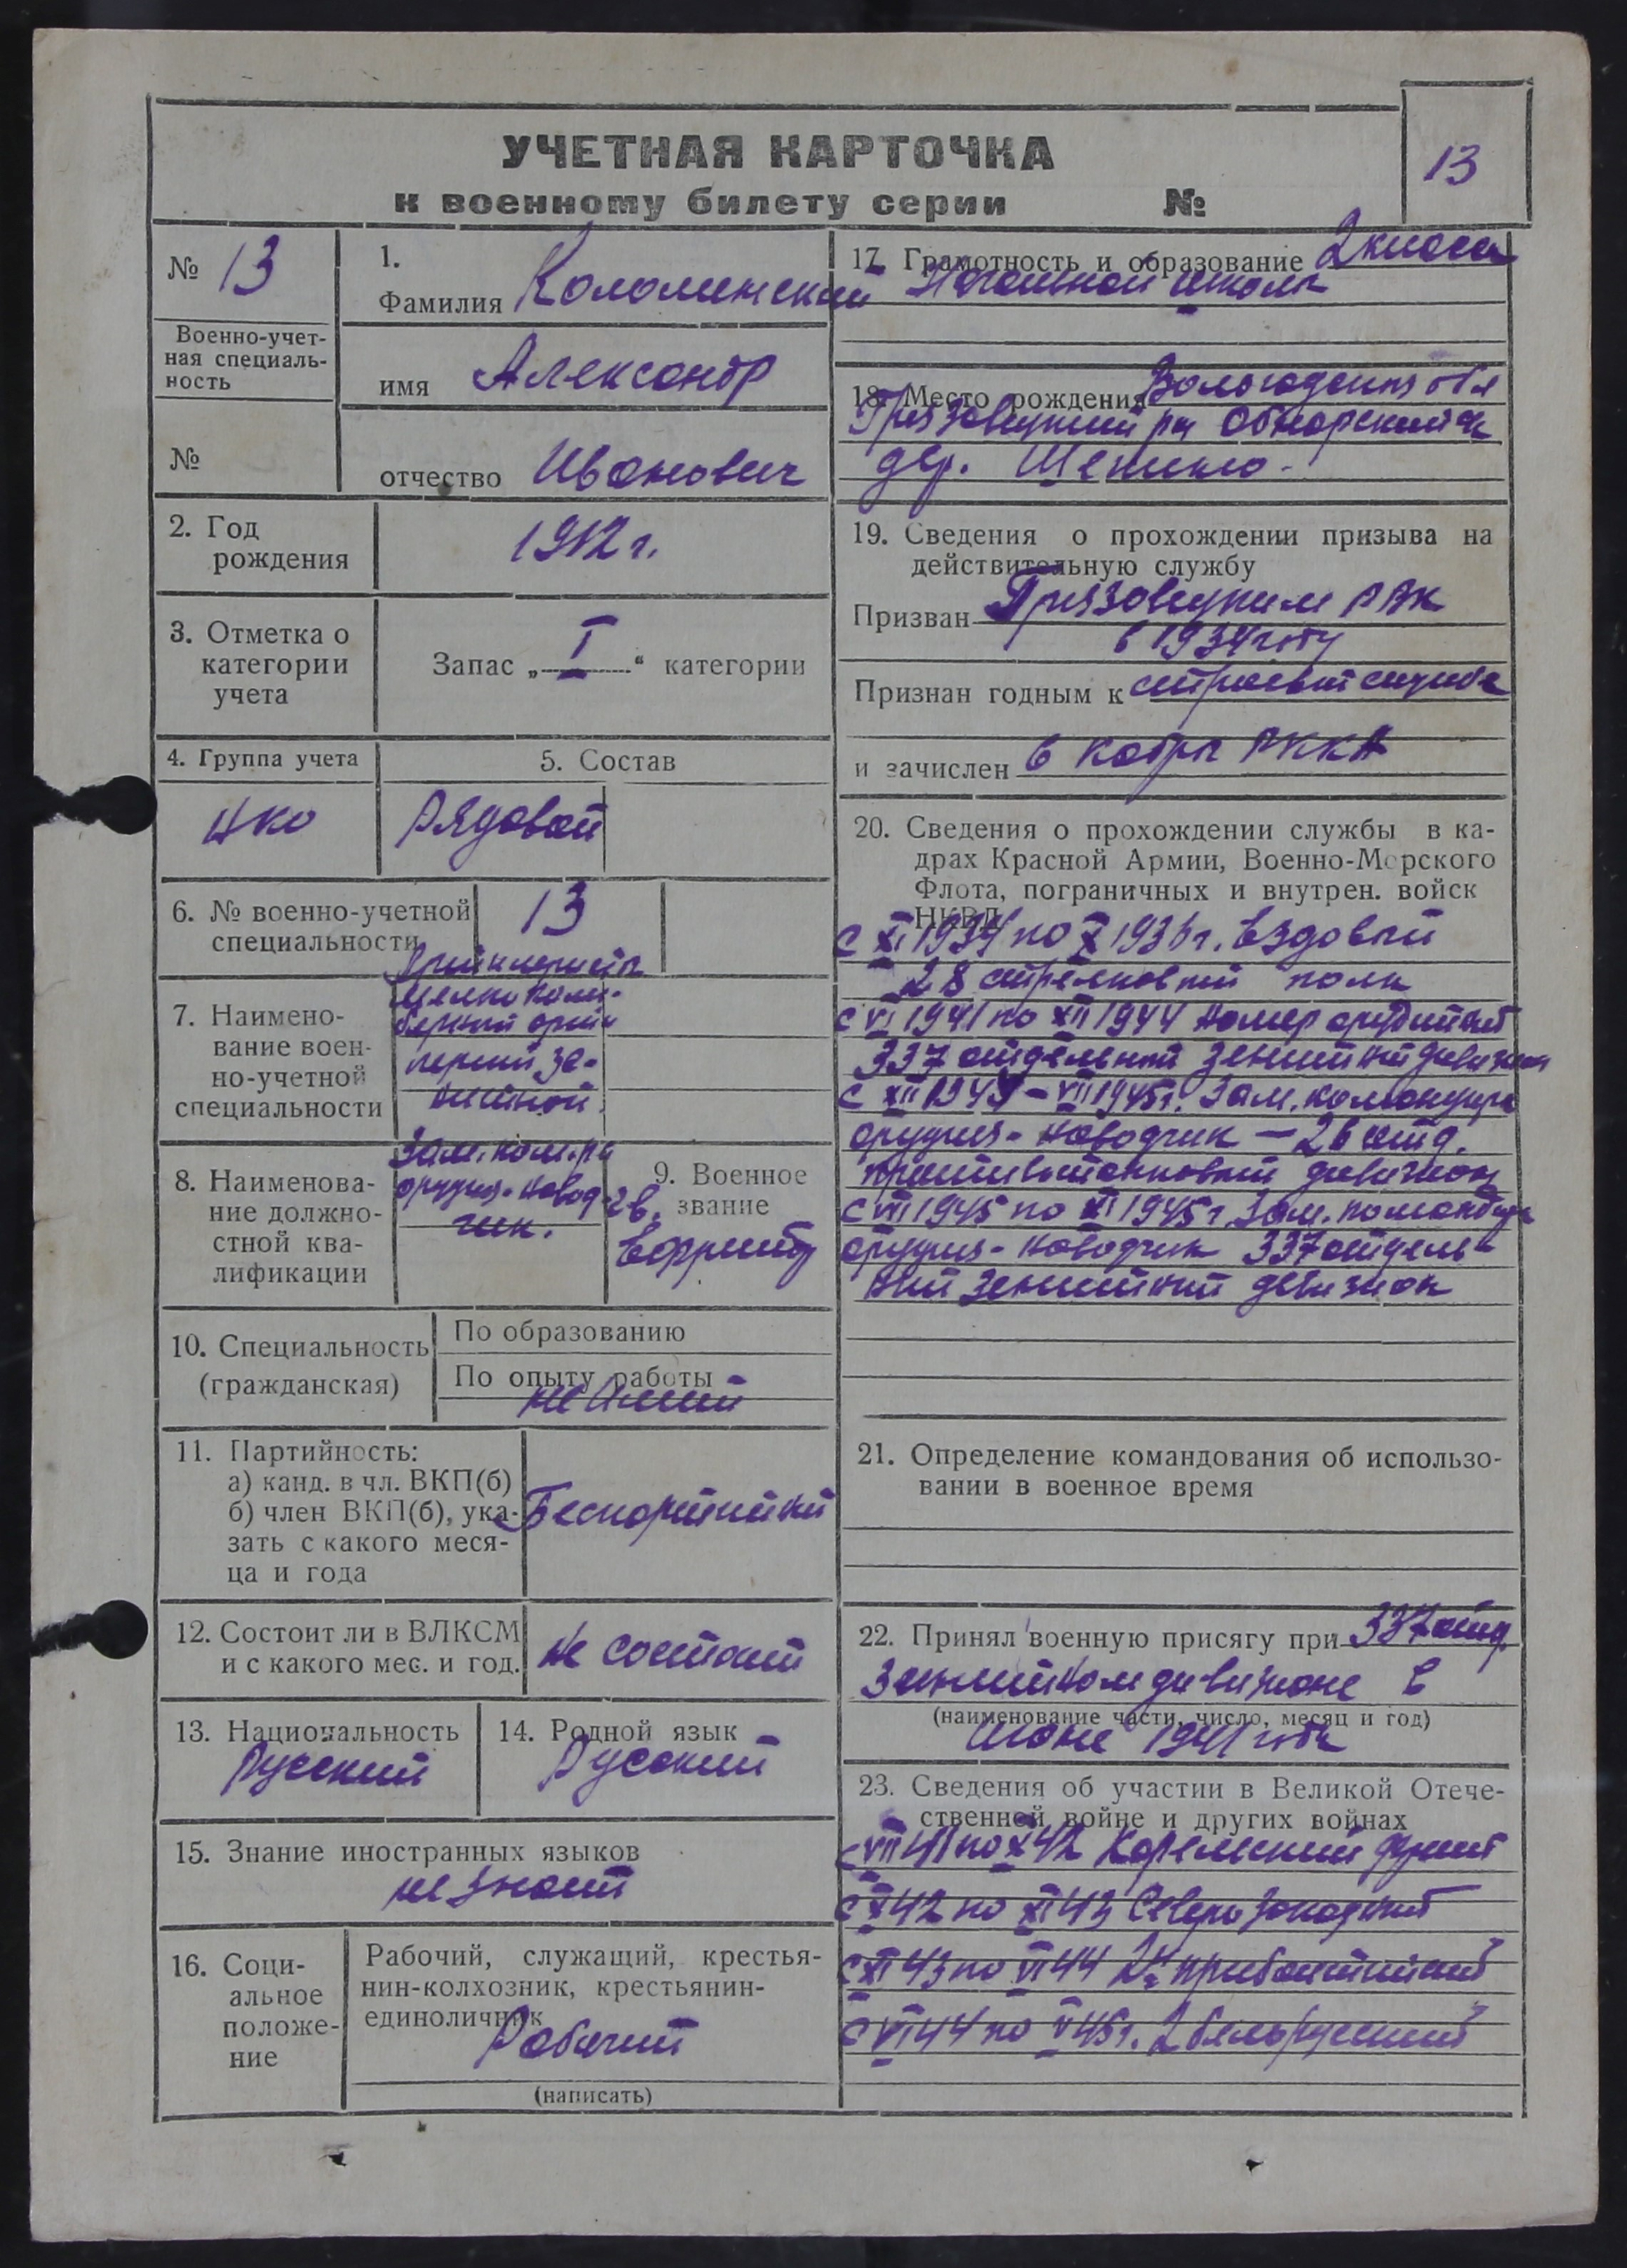 УЧЕТНАЯ КАРТОЧКА
к военному билету серии №
13
№ 13
Военно-учет-
ная специаль-
ность
№
1.
Фамилия Коломинский
имя Александр
отчество Иванович
2. Год
рождения
1912 г.
3. Отметка о
категории
учета
Запас „ I “ категории
4. Группа учета
5. Состав
Рядовой
6. № военно-учетной
специальности
13
7. Наимено-
вание воен-
но-учетной
специальности
Артиллеристы
мелкокали-
берной артил
лерии зе-
нитной.
8. Наименова-
ние должно-
стной ква-
лификации
Зам. ком-ра
орудия-навод-
чик.
9. Военное
звание
гв.
10. Специальность
(гражданская)
По образованию
По опыту работы
не имеет
11. Партийность:
а) канд. в чл. ВКП(б)
б) член ВКП(б), ука-
зать с какого меся-
ца и года
Беспартийный
12. Состоит ли в ВЛКСМ
и с какого мес. и год.
не состоит
13. Национальность
Русский
14. Родной язык
Русский
15. Знание иностранных языков
не знает
16. Соци-
альное
положе-
ние
Рабочий, служащий, крестья-
нин-колхозник, крестьянин-
единоличник
Рабочий
(написать)
17. Грамотность и образование 2 класса
Начальной школы
18. Место рождения Вологодская обл
Грязовецкий р-н Обнорский
дер.
19. Сведения о прохождении призыва на
действительную службу
Призван Грязовецким РВК
в 1934 году
Признан годным к строевой службе
и зачислен в кадры РККА
20. Сведения о прохождении службы в ка-
драх Красной Армии, Военно-Морского
Флота, пограничных и внутрен. войск
НКВД
с XI 1934 по X 1936 г. Ездовый
28 стрелковый полк
с VI 1941 по XII 1944 номер орудийный
337 отдельный зенитный дивизион
с XII 1944 - VII 1945 г. Зам. командира
орудия-наводчик - 26 отд.
противотанковый дивизион
с VII 1945 по XI 1945 г. Зам. командира
орудия-наводчик 337 отдель-
ный зенитный дивизион
21. Определение командования об использо-
вании в военное время
22. Принял военную присягу при 337 отд.
зенитном дивизионе в
(наименование части, число, месяц и год)
1941 года
23. Сведения об участии в Великой Отече-
ственной войне и других войнах
с VII 41 по X 42 Карельский фронт
с X 42 по XI 43 Северо Западный
с XI 43 по VI 44 2й прибалтийский
с VI 44 по V 45 г. 2 белорусский